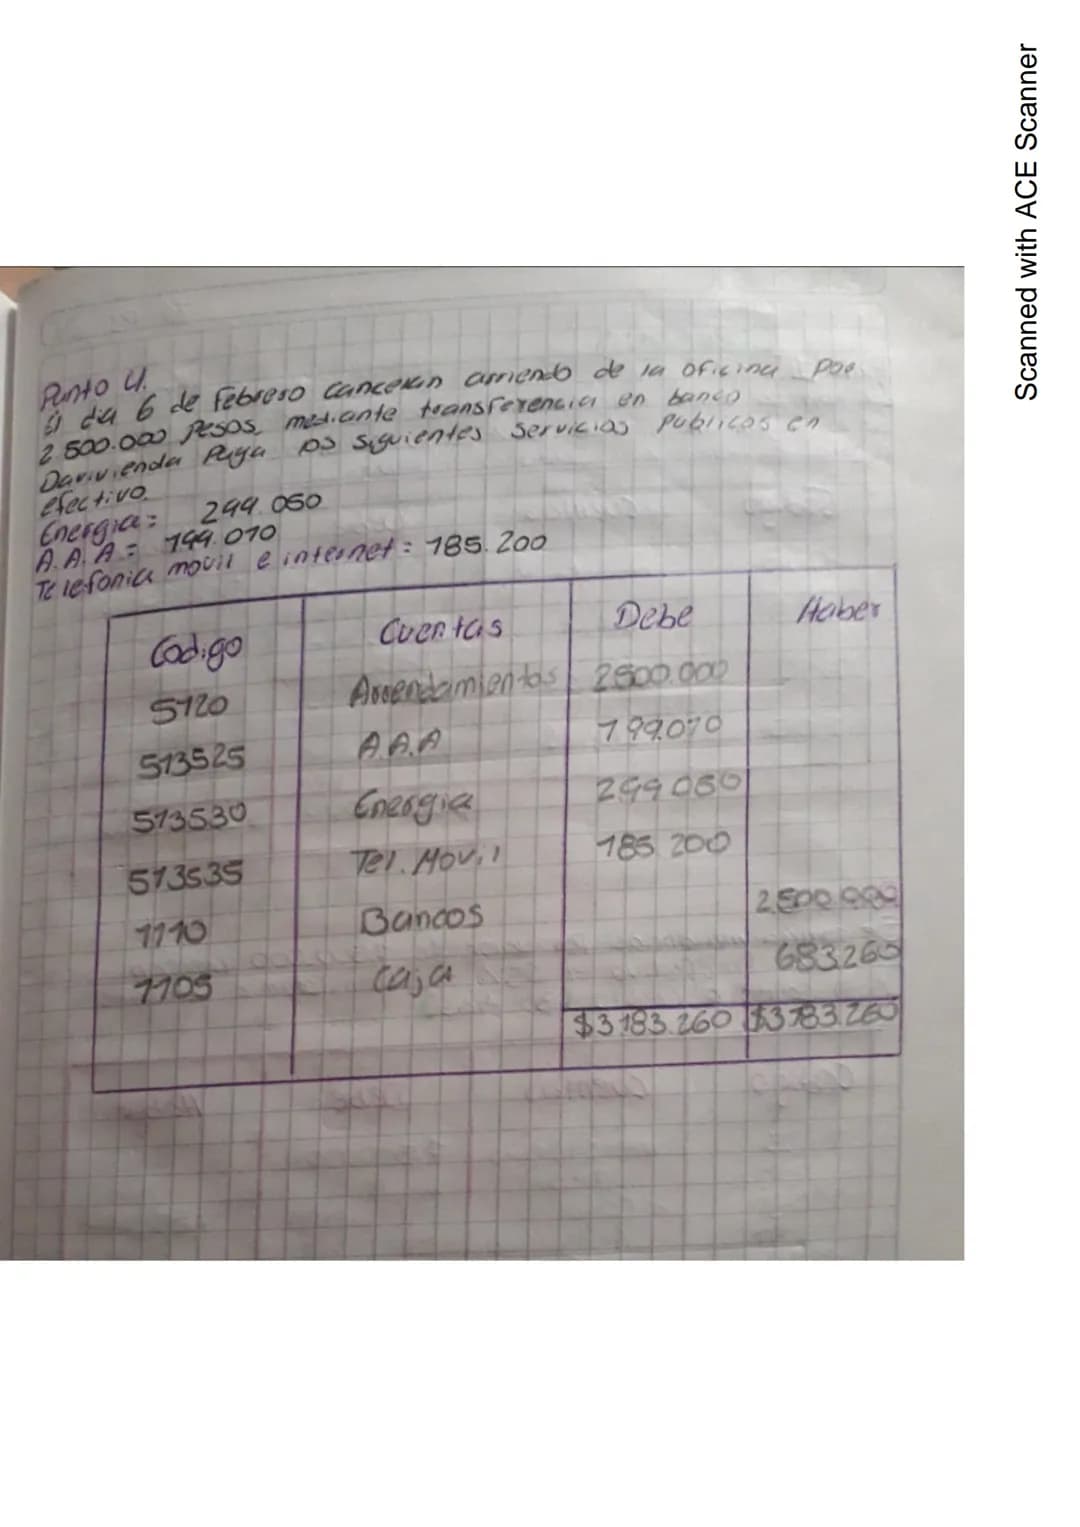 Punto 4.
El dia 6 de Febrero cancelan arriendo de la oficina por
2.500.000 pesos, mediante transferencia en banco
Davivienda Paga los siguientes servicios publicos en
efectivo.
Energia: 299.050
A.A.A = 199.010
Telefonia movil e internet: 185.200
Codigo Cuentas Debe Haber
5120 Arrendamientos 2500.000
513525 A.A.A 199.010
513530 Energia 299050
513535 Tel. Movil 185.200
1110 Bancos 2.500.000
1105 Caja 683.260
$3183.260 $3183.260
Scanned with ACE Scanner